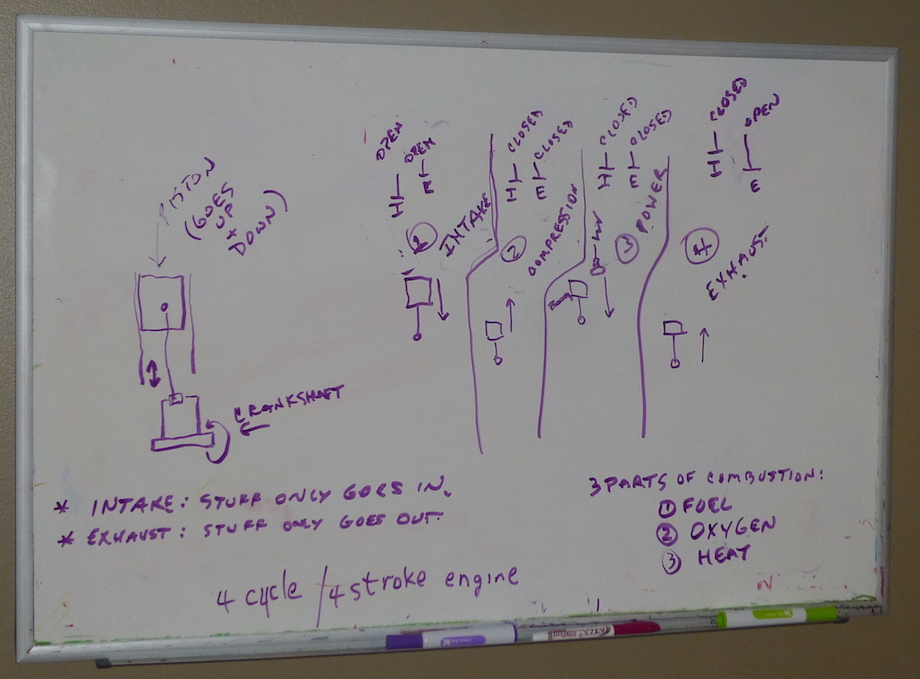 PISTON
(GOES
UP
+
DOWN)
CRANKSHAFT
OPEN
OPEN
H
E
1
INTAKE
CLOSED
CLOSED
H
E
2
COMPRESSION
CLOSED
CLOSED
H
E
3
POWER
CLOSED
OPEN
H
E
4
EXHAUST
* INTAKE: STUFF ONLY GOES IN.
* EXHAUST: STUFF ONLY GOES OUT.
4 cycle / 4 stroke engine
3 PARTS OF COMBUSTION:
1 FUEL
2 OXYGEN
3 HEAT